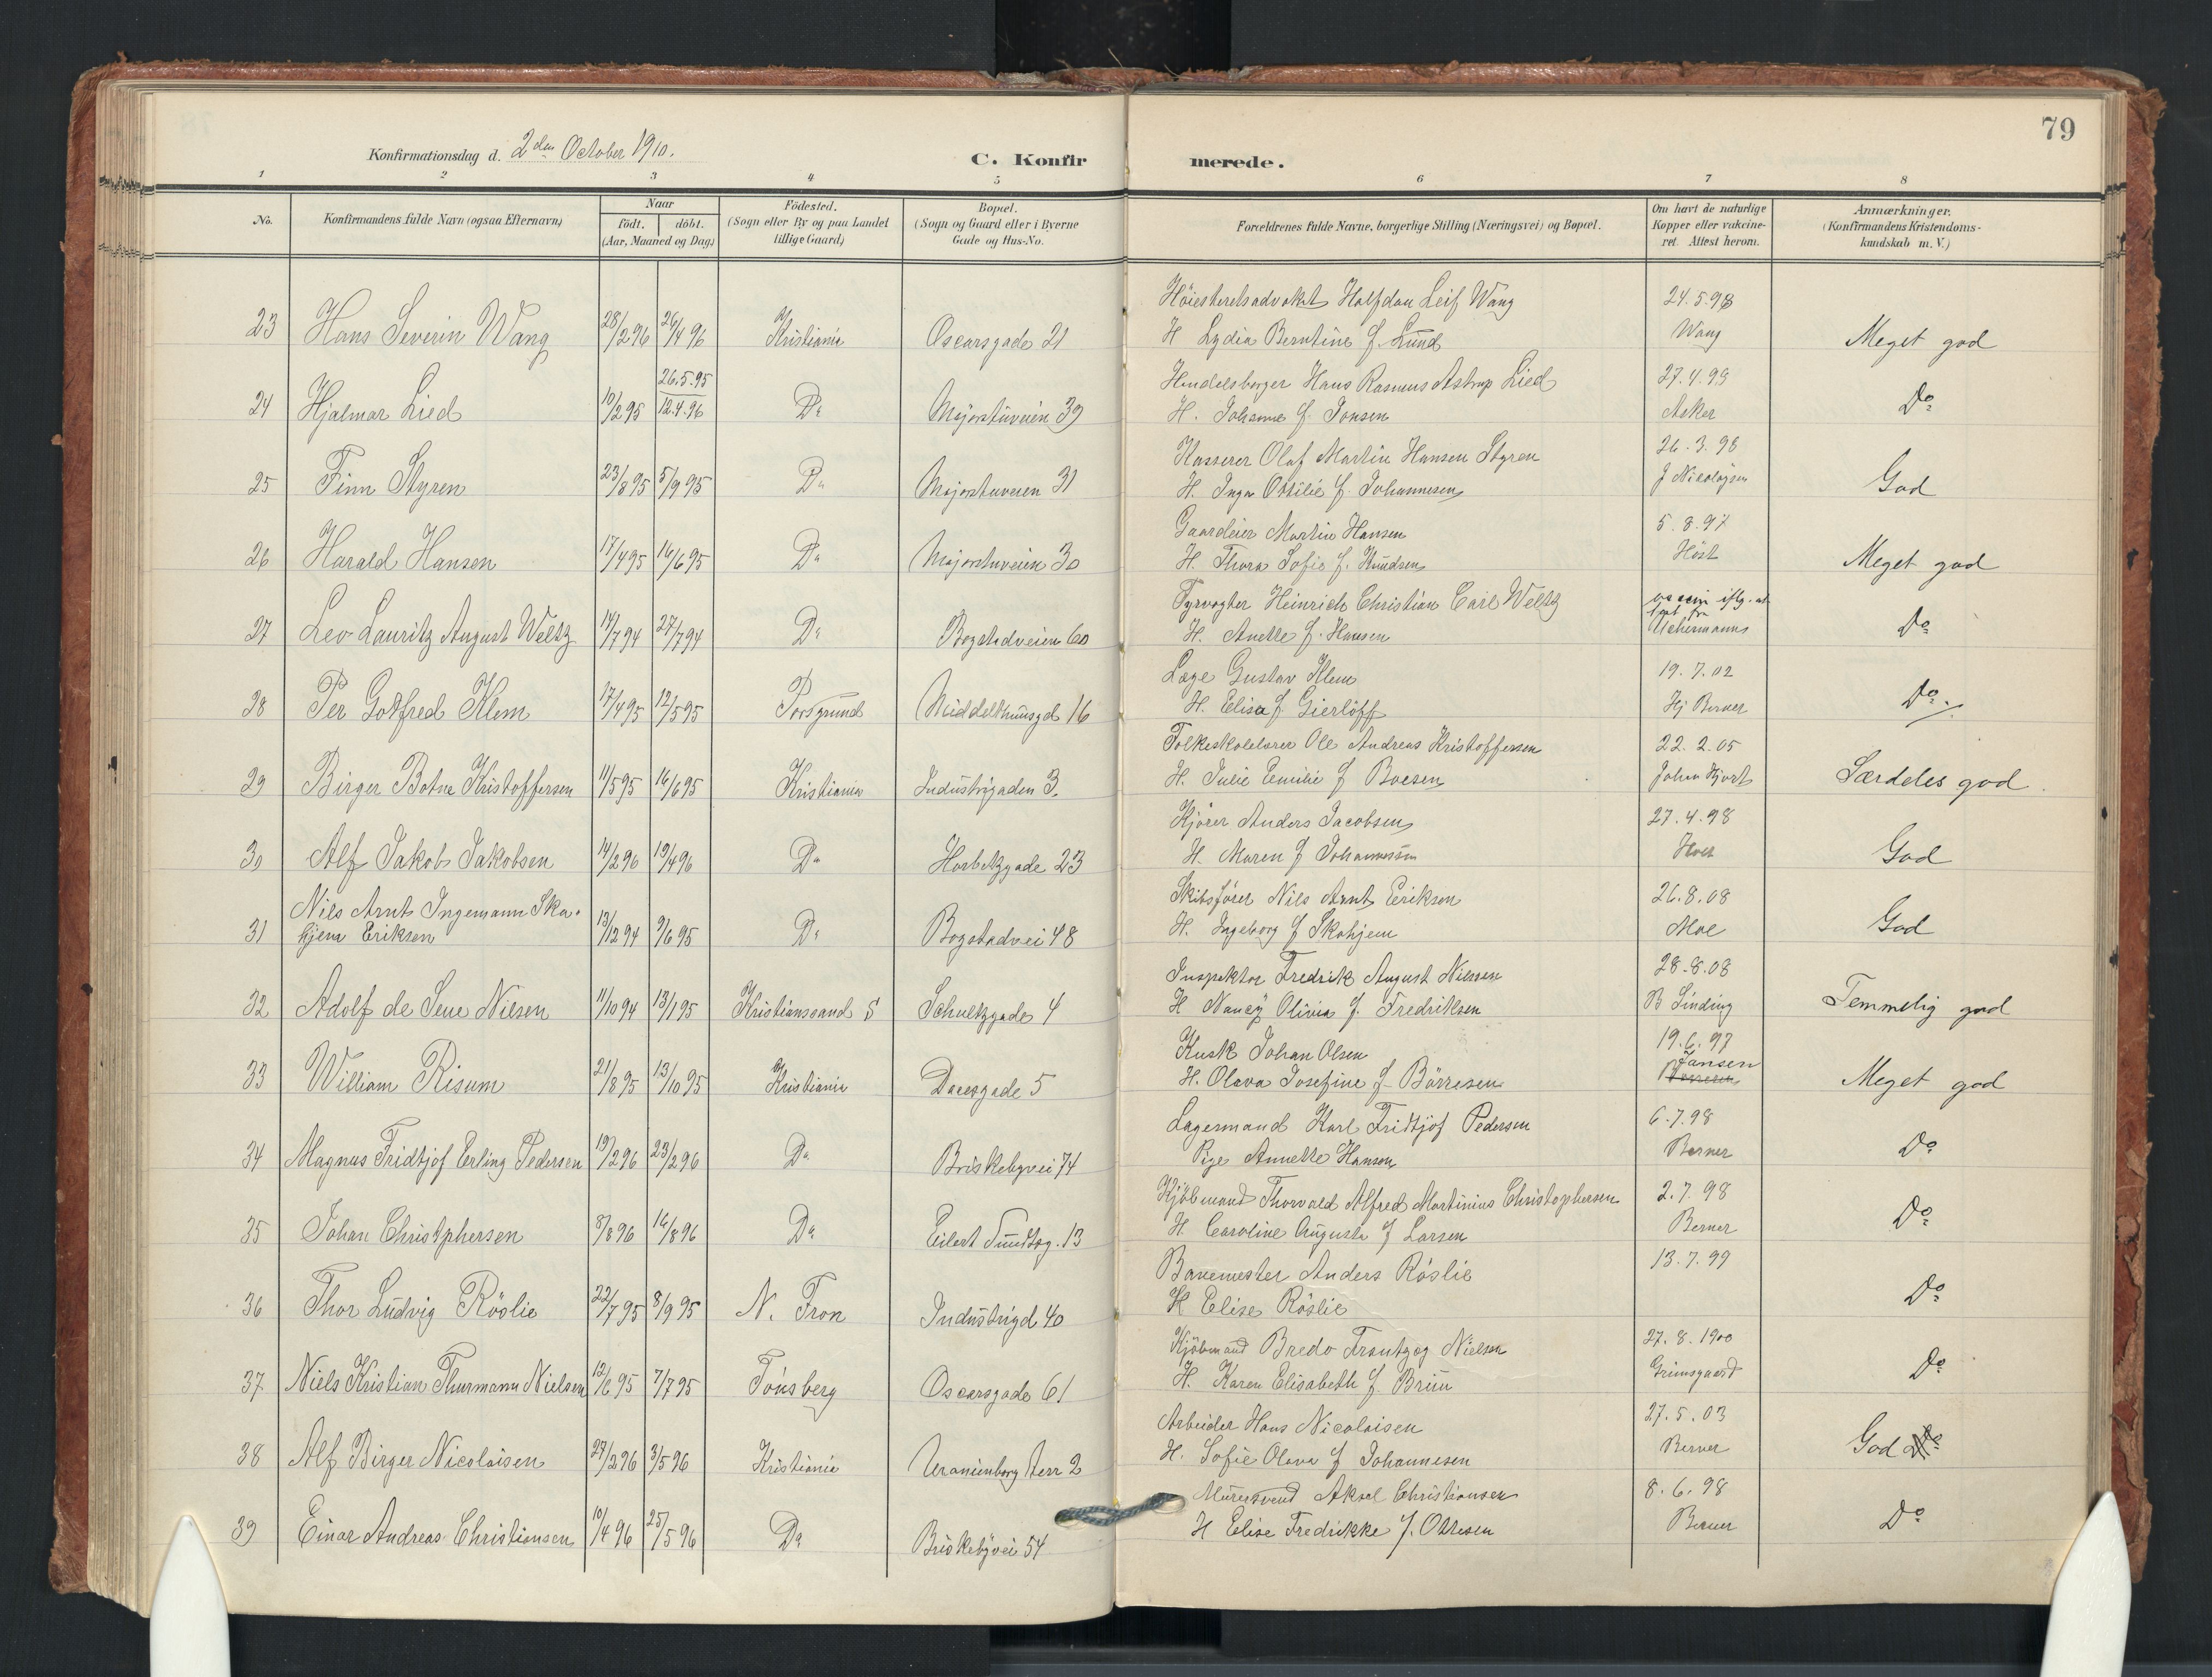 79
Konfirmationsdag d. 2den October 1910.
C. Konfirmerede.
1 2 3 4 5 6 7 8
No. Konfirmandens fulde Navn (ogsaa Efternavn) Naar födt. döbt. (Aar, Maaned og Dag) Födested. (Sogn eller By og paa Landet tillige Gaard) Bopæl. (Sogn og Gaard eller i Byerne Gade og Hus-No. Forældrenes fulde Navne, borgerlige Stilling (Næringsvei) og Bopæl. Om havt de naturlige Kopper eller vakcineret. Attest herom. Anmærkninger. (Konfirmandens Kristendomskundskab m. V.)
Höiesteretsadvokat Halfdan Leif Wang 24.5.98
23 Hans Severin Wang 28/2 96 26/4 96 Kristiania Oscarsgade 21 H Lydia Berntine f. Lund Wang Meget god
26.5.95
Handelsborger Hans Rasmus Astrup Lied 27.4.99
24 Hjalmar Lied 10/2 95 12.4.96 Do Majorstuveien 39 H. Johanne f. Jonsen Asker Do
Kasserer Olaf Martin Hansen Styren 26.3.98
25 Finn Styren 23/8 95 5/9 95 Do Majorstuveien 31 H. Inga Ottilie f. Johannesen J Nicolaysen God
Gaardeier Martin Hansen 5.8.97
26 Harald Hansen 17/4 95 16/6 95 Do Majorstuveien 30 H. Thora Sofie f. Knudsen Höst Meget god
Fyrvogter Heinrich Christian Carl Weltz vaccin iflg. at
27 Leo Lauritz August Weltz 14/7 94 27/7 94 Do Bogstadveien 60 H. Anette f. Hansen Uchermanns Do
Læge Gustav Klem 19.7.02
28 Per Gotfred Klem 17/4 95 12/5 95 Porsgrund Middelthunsgd 16 H. Elisa f Gierlöff Hj Berner Do
Folkeskolelærer Ole Andreas Kristoffersen 22.2.05
29 Birger Botne Kristoffersen 11/5 95 16/6 95 Kristiania Industrigaden 3. H. Julie Emilie f Boesen Johan Hjort Særdeles god.
Kjörer Anders Jacobsen 27.4.98
30 Alf Jakob Jakobsen 14/2 96 19/4 96 Do Holbetzgade 23 H. Maren f Johannessen God
Nils Arnt Ingemann Ska- Skibsfører Nils Arnt Eriksen 26.8.08
31 hjem Eriksen 13/12 94 9/6 95 Do Bogstadvei 48 H. Ingeborg f Skahjem Moe God
Inspektor Fredrik August Nilsen 28.8.08
32 Adolf de Seue Nilsen 11/10 94 13/1 95 Kristianssand S Schultzgade 4 H Nancy Olivia f. Fredriksen B Sinding Temmelig god
Kusk Johan Olsen 19.6.97
Jansen
33 William Risum 21/8 95 13/10 95 Kristiania Daaesgade 5 H. Olava Josefine f. Börresen Meget god
Lagermand Karl Fridtjof Pedersen 6.7.98
34 Magnus Fridtjof Erling Pedersen 19/2 96 23/2 96 Do Briskebyvei 74 Pige Annette Hansen Berner Do
Kjöbmand Thorvald Alfred Martinius Christophersen 2.7.98
35 Johan Christphersen 8/8 96 16/8 96 Do Eilert Sundtsg. 13 H. Caroline Augusta f Larsen Berner Do
Banemester Anders Röslie 13.7.99
36 Thor Ludvig Röslie 22/7 95 8/9 95 N. Fron Industrigd 40 H Elise Röslie Do
Kjöbmand Bredo Frantzog Nielsen 27.8.1900
37 Niels Kristian Thurmann Nielsen 12/6 95 7/7 95 Tönsberg Oscarsgade 61 H. Karen Elisabeth f. Bruu Grimsgaard Do
Arbeider Hans Nicolaisen 27.5.03
38 Alf Birger Nicolaisen 29/2 96 3/5 96 Kristiania Uranienborg terr 2 H. Sofie Olava f Johannesen Berner God Do
Mürersvend Aksel Christiansen 8.6.98
39 Einar Andreas Christiansen 10/4 96 25/5 96 Do Briskebyvei 54 H Elise Fredrikke f. Ottesen Berner Do